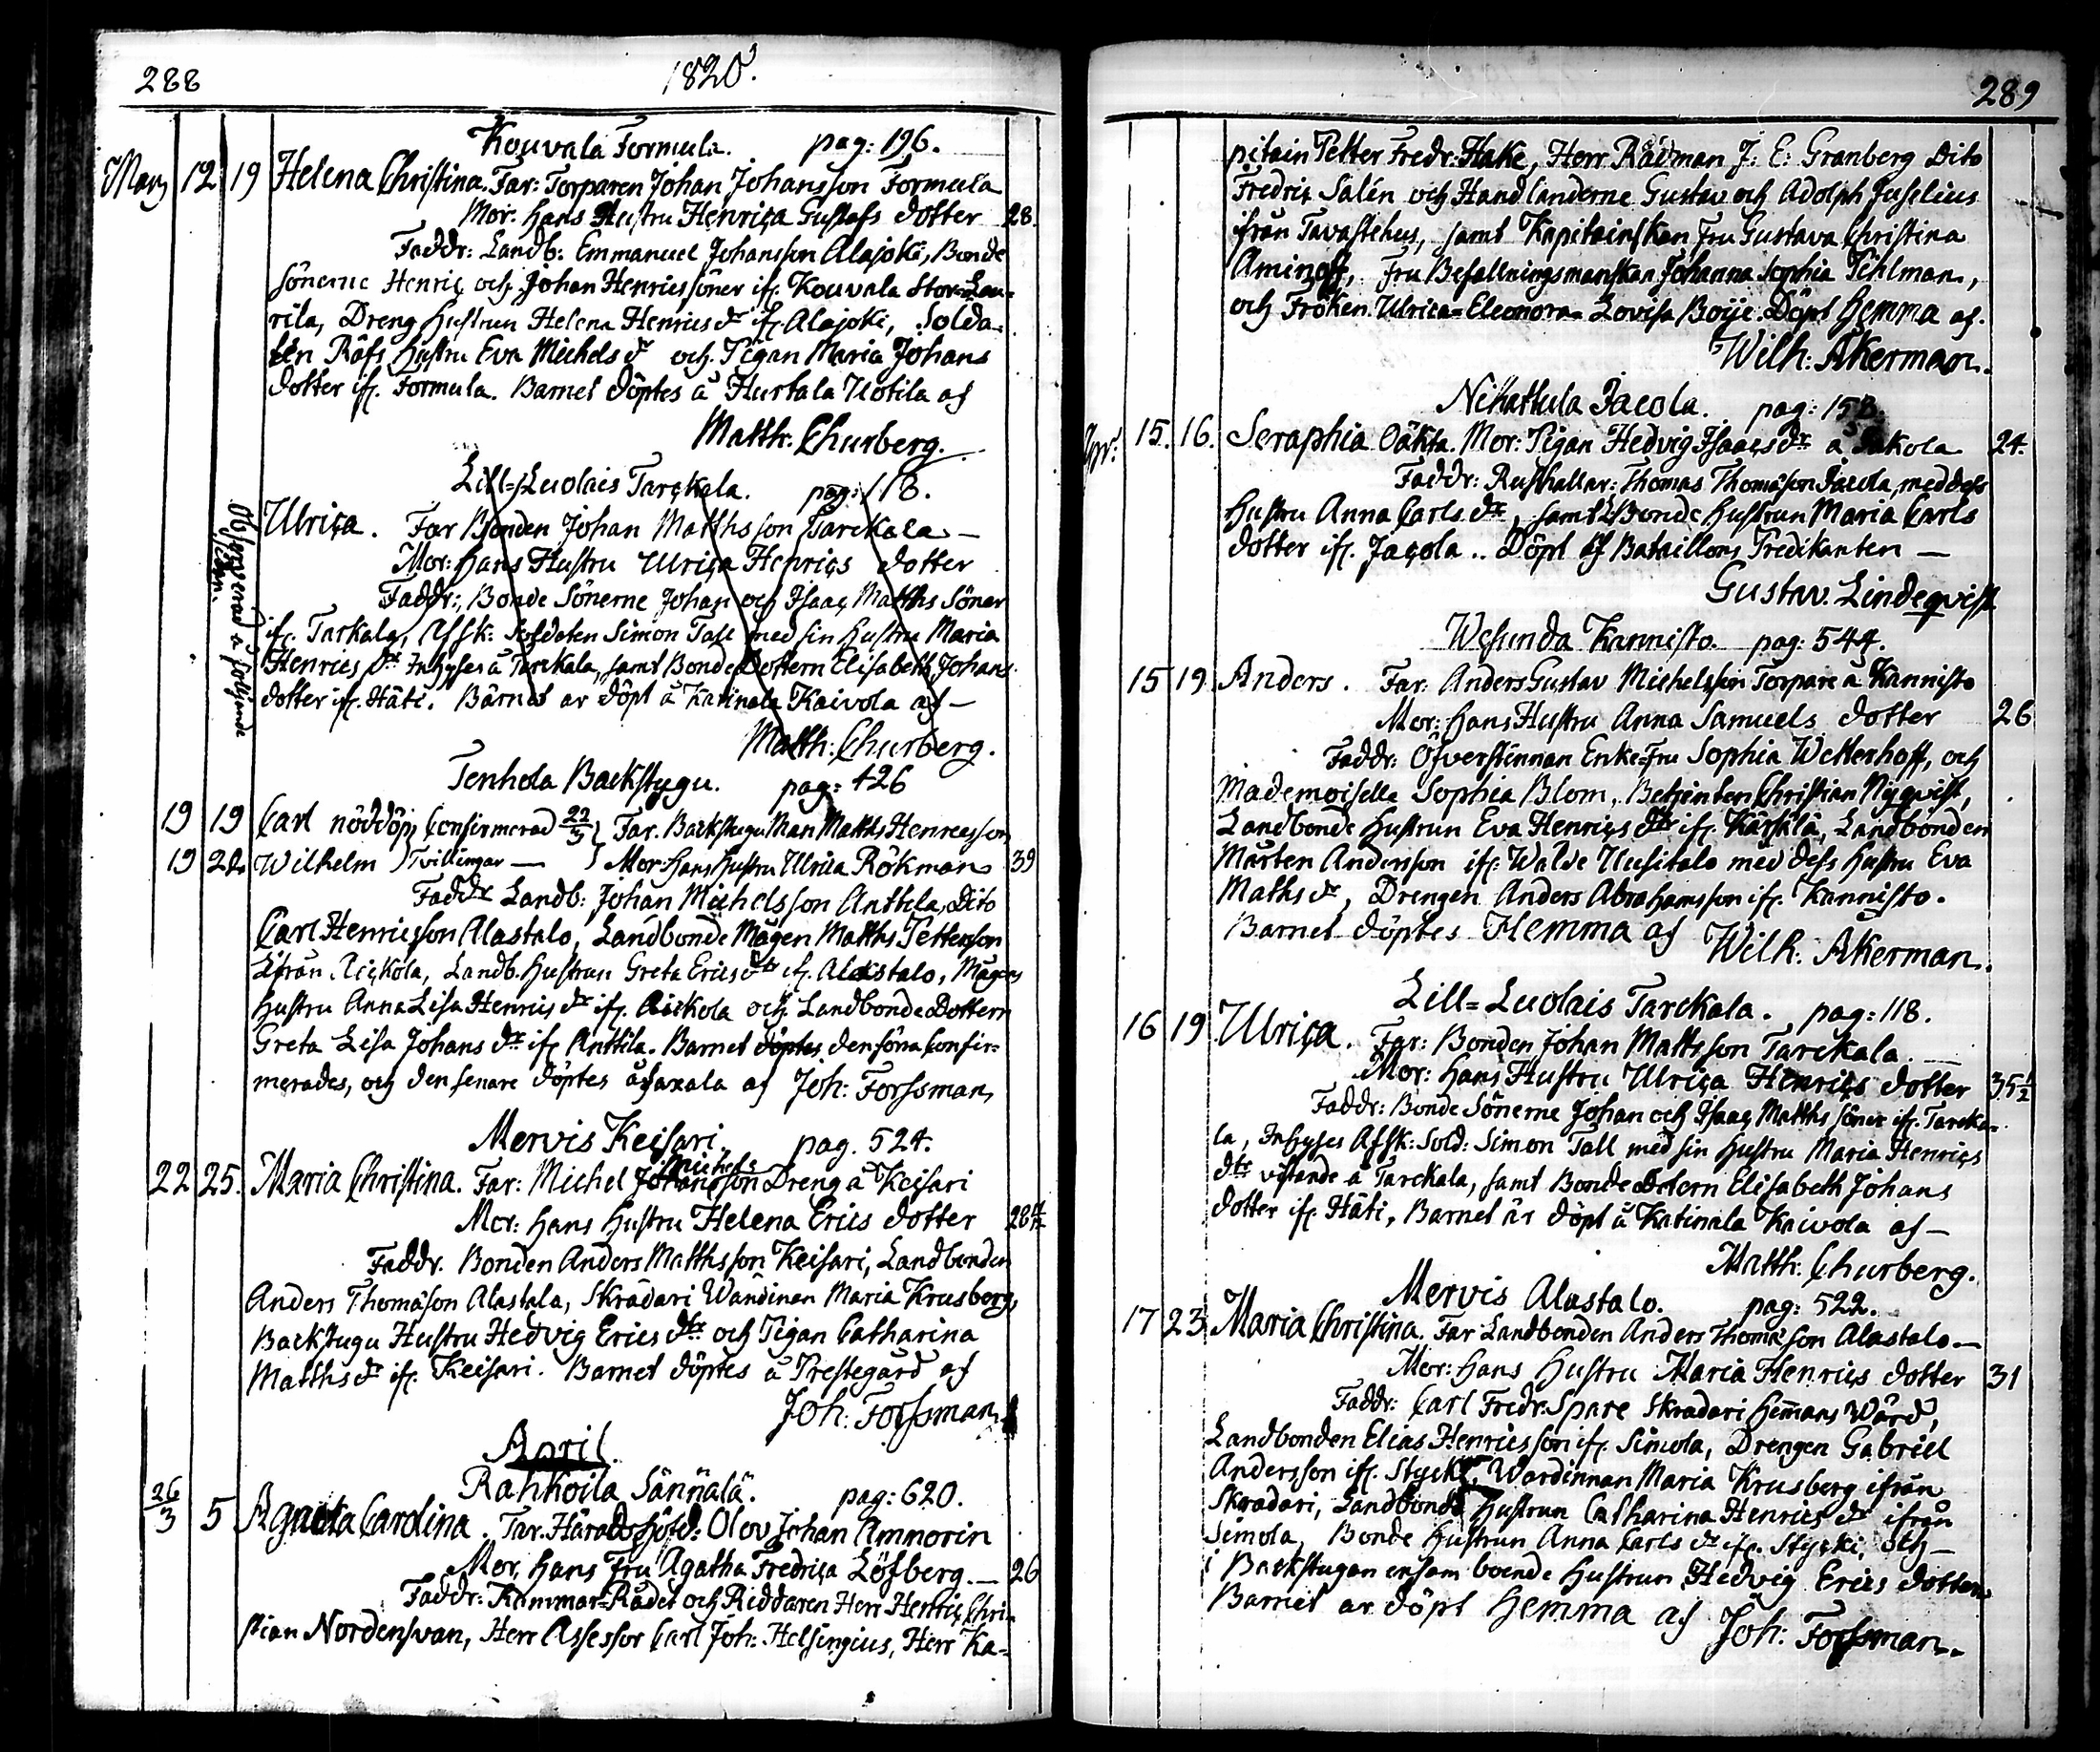 288
1820.
Kouvala Formula. pag: 196.
Mars 12 19 Helena Christina. Far: Torparen Johan Johansson Formula
Mor: hans Hustru Henrica Gustafs dotter 28.
Faddr: Landb: Emmanuel Johansson Alajoki, Bonde
Sönerne Henric och Johan Henricssöner ifr. Kouvala Stor-Lau-
rila, Dreng Hustrun Helena Henricsdr ifr Alajoki, Solda-
ten Räfs Hustru Eva Michelsdr och Pigan Maria Johans
dotter ifr. Formula. Barnet döptes å Hurtala Uotila af
Matth: Churberg.
Lill-Luolais Tarckala. pag: 118.
Observerad å följjande
sidan.
Ulrica. Far Bonden Johan Matthsson Tarckala —
Mor: hans Hustru Ulrica Henrics dotter
Faddr: Bonde Sönerne Johan och Isaac Matths Söner
ifr. Tarkala, Affsk: Soldaten Simon Tall med sin hustru Maria
Henricsdr Inhyses å Tarckala, samt Bonde Dottern Elisabeth Johans
dotter ifr. Häti. Barnet är döpt å Katinala Kaivola af —
Matth: Churberg.
Tenhola Backstugu. pag: 426
19 19 Carl nöddöpt Confirmerad 22/3 } Far. Backstugu Man Matths Henricsson
19 20 Wilhelm } Tvillingar — } Mor: Hans Hustru Ulrica Rökman 39
Faddr Landb: Johan Michelsson Anttila, Dito
Carl Henricsson Alastalo, Landbonde Mågen Matths Petterson
ifrån Rickola, Landb. hustrun Greta Ericsdtr ifr. Alastalo, Mågens
hustru Anna Lisa Henricsdr ifr. Rickola och Landbonde Dottern
Greta Lisa Johansdr ifr Anttila. Barnet döptes den förra Confir-
merades, och den senare döptes å Saxala af Joh: Forssman,
Mervis Keisari. pag. 524.
22 25. Maria Christina. Far: Michel Johansson Michels Dreng å Keisari
Mor: hans hustru Helena Erics dotter 28
Faddr. Bonden Anders Matthsson Keisari, Landbonden
Anders Thomäson Alastala, Skrädari Wärdinan Maria Krusberg,
Backstugu Hustru Hedvig Ericsdtr och Pigan Catharina
Matthsdr ifr. Keisari. Barnet döptes å Prestegård af
Joh: Forssman,
April.
Rahkoila Sännälä. pag: 620.
26/3 5 Agneta Carolina. Far. Häradshöfd: Olov Johan Amnorin
Mor, hans Fru Agatha Fredrica Löfberg. — 26
Faddr: Kammar-Rådet och Riddaren Herr Henric Chri-
stian Nordensvan, Herr Assessor Carl Joh: Helsingius, Herr Ka-
289
pitain Petter Fredr: Hake, Herr Rådman J: E: Granberg Dito
Fredric Salén och Handlanderne Gustav och Adolph Juselius
ifrån Tavastehus, samt Kapitainskan Fru Gustava Christina
Aminoff, Fru Befallningsmanskan Johanna Sophia Pihlman,
och Fröken Ulrica-Eleonora-Lovisa Boije. Döpt hemma af.
Wilh: Åkerman.
Nihattula Jacola. pag: 153.
Apr: 15. 16. Seraphia Oäkta. Mor: Pigan Hedvig Isaacsdr å Jakola 24.
Faddr: Rusthållar: Thomas Thomäson Jacola, med dess
hustru Anna Carlsdtr, samt Bonde hustrun Maria Carls
dotter ifr. Jacola.. Döpt af Bataillons Predikanten —
Gustav. Lindeqvist
Wesunda Kannisto. pag: 544.
15 19 Anders. Far: Anders Gustav Michelsson Torpare å Kannisto
Mor: hans Hustru Anna Samuels dotter 26
Faddr: Öfverstinnan Enke-Fru Sophia Wetterhoff, och
Mademoiselle Sophia Blom, Betjenten Christian Nyqvist,
Landbonde hustrun Eva Henricsdtr ifr. Kärsälä, Landbonden
Mårten Andersson ifr. Walde Uusitalo med dess hustru Eva
Mathsdr, Drengen Anders Abrahamsson ifr. Kannisto.
Barnet döptes Hemma af Wilh: Akerman.
Lill-Luolais Tarckala. pag: 118.
16 19 Ulrica. Far: Bonden Johan Mattsson Tarckala. —
Mor: hans Hustru Ulrica Henrics dotter 35 1/2
Faddr: Bonde Sönerne Johan och Isaac Matths söner ifr. Tarcka-
la, Inhyses Affsk: Sold: Simon Tall med sin hustru Maria Henrics
dtr vistande å Tarckala, samt Bonde Dotern Elisabeth Johans
dotter ifr. Häti, Barnet är döpt å Katinala Kaivola af —
Matth: Churberg.
Mervis Alastalo. pag: 522.
17 23 Maria Christina. Far Landbonden Anders Thomäson Alastalo —
Mor: hans Hustru Maria Henrics dotter 31
Faddr: Carl Fredr. Spare Skrädari Hemans Wärd,
Landbonden Elias Henricsson ifr. Simola, Drengen Gabriel
Andersson ifr. Stycki, Wärdinnan Maria Krusberg ifrån
Skrädari, Landbonde hustrun Catharina Henricsdr ifrån
Simola, Bonde hustrun Anna Carlsdr ifr. Stycki, och —
i Backstugan ensam boende hustrun Hedvig Erics dotter
Barnet är döpt hemma af Joh: Forssman.